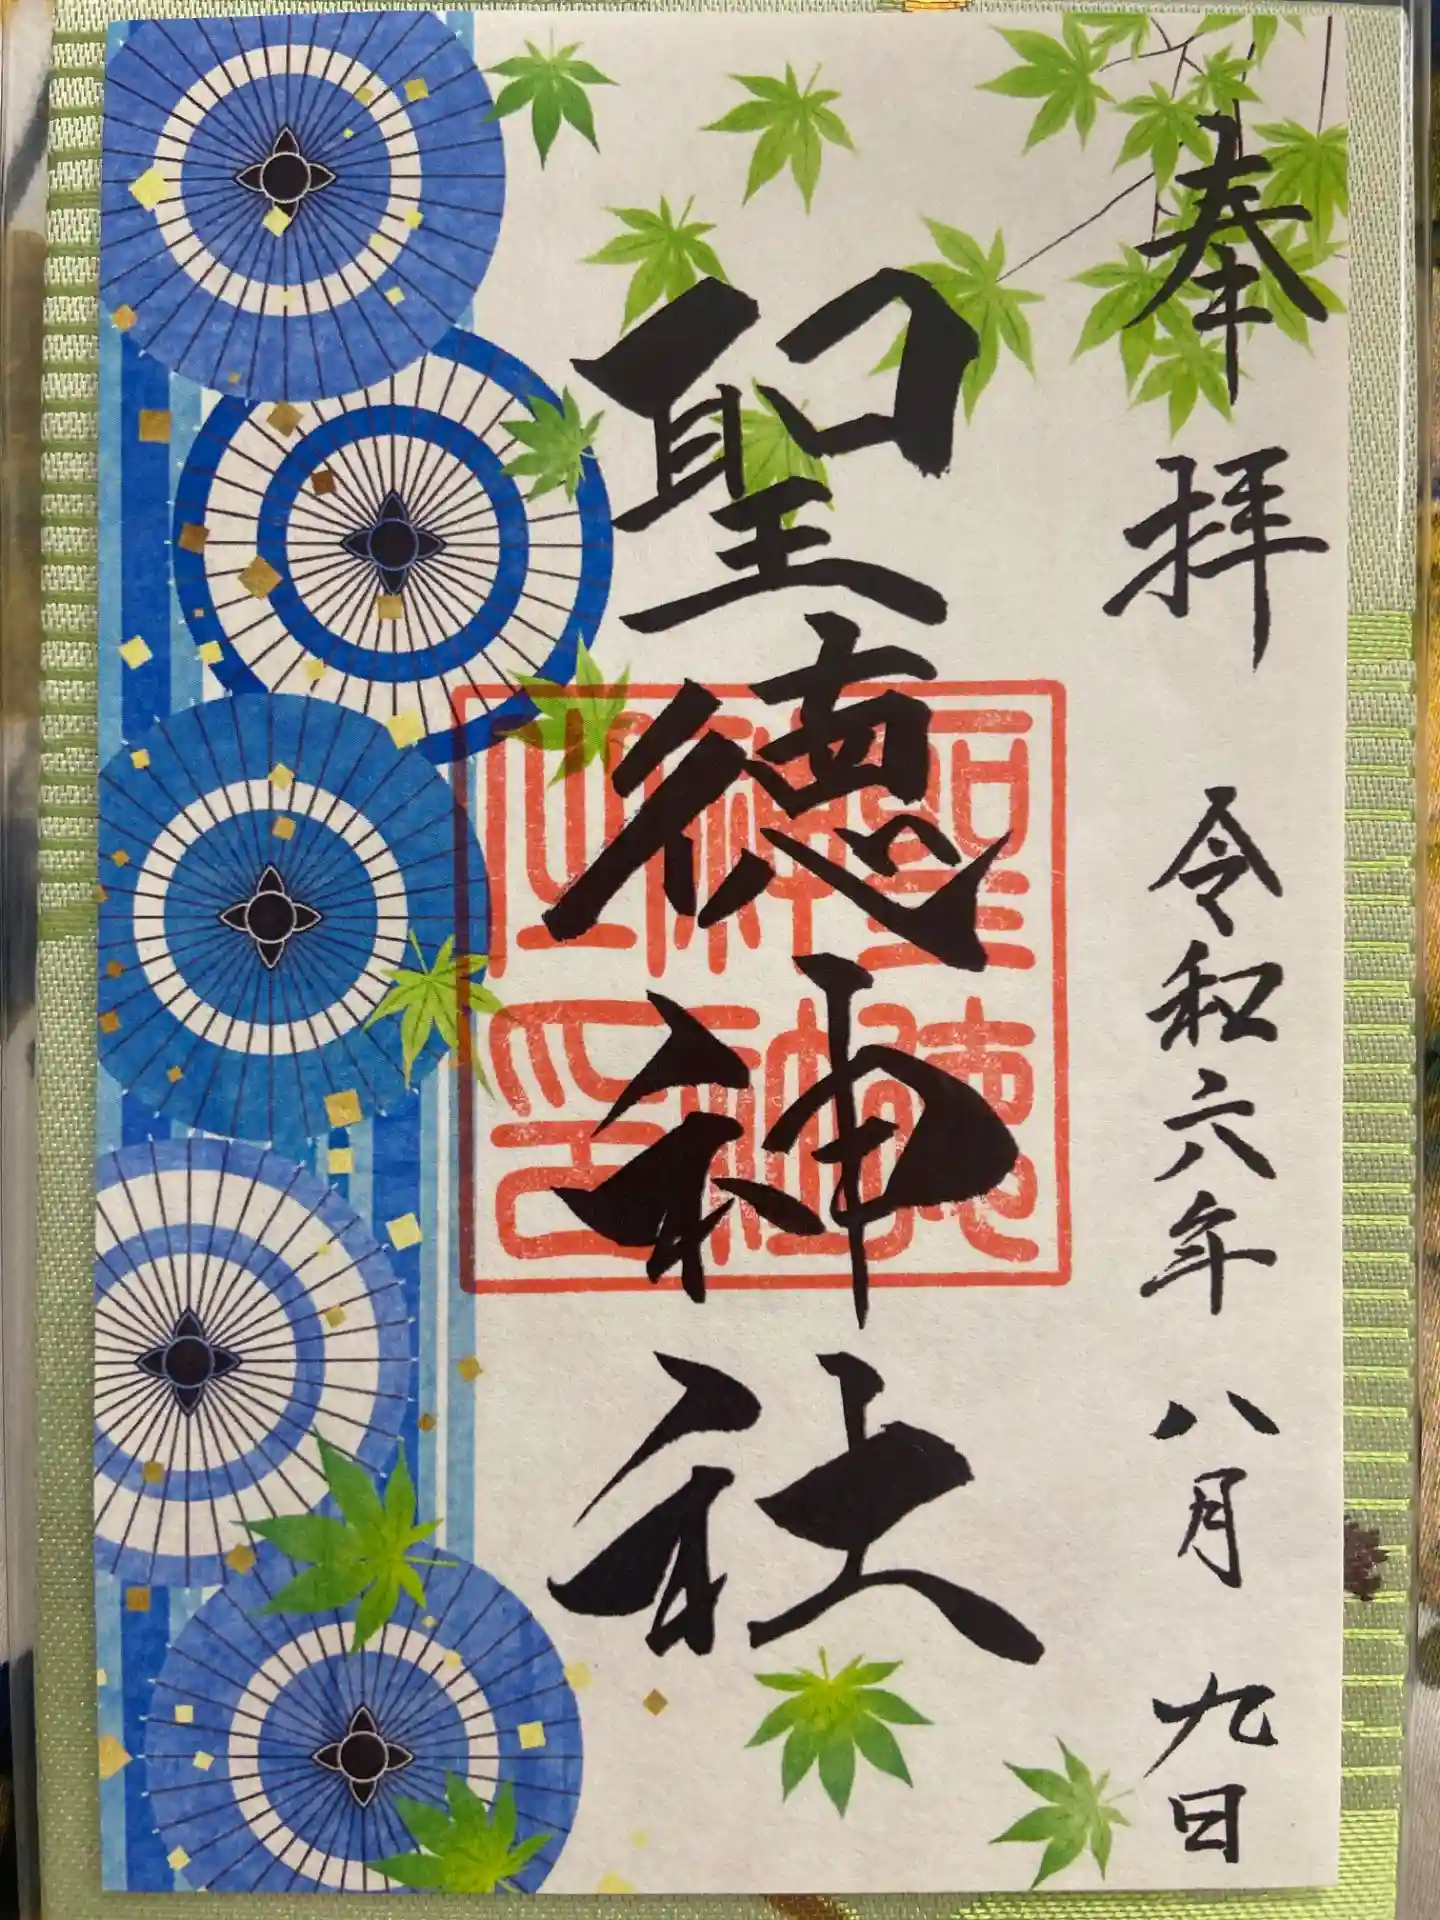 奉拝
令和六年八月九日
聖徳神社
聖徳
神社
之印